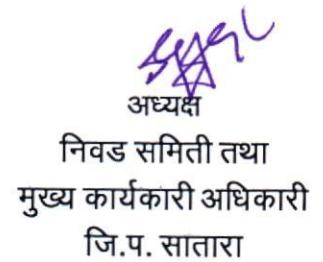 अध्यक्ष
निवड समिती तथा
मुख्य कार्यकारी अधिकारी
जि.प. सातारा